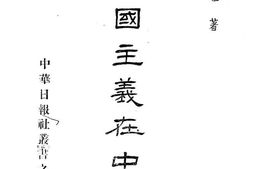 著
國主義在中
中華日報社叢書之